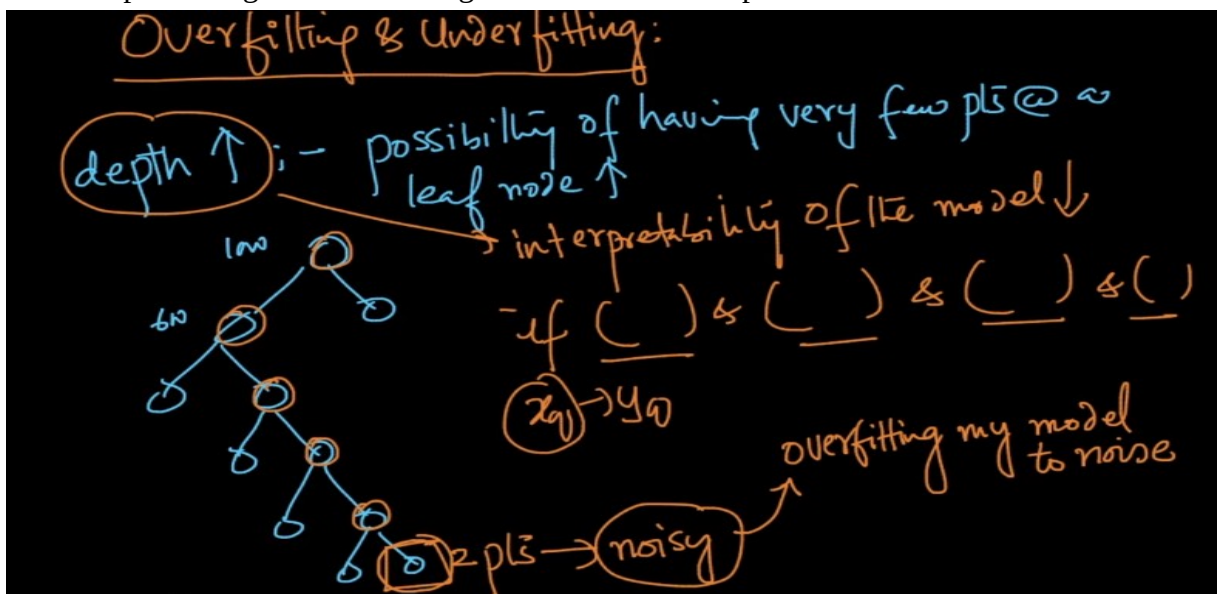 Overfitting & Underfitting:
depth ↑ :- possibility of having very few pts @ a
leaf node ↑
interpretability of the model ↓
- if ( ) & ( ) & ( ) & ( )
xq → yq
overfitting my model
to noise
2 pts → noisy